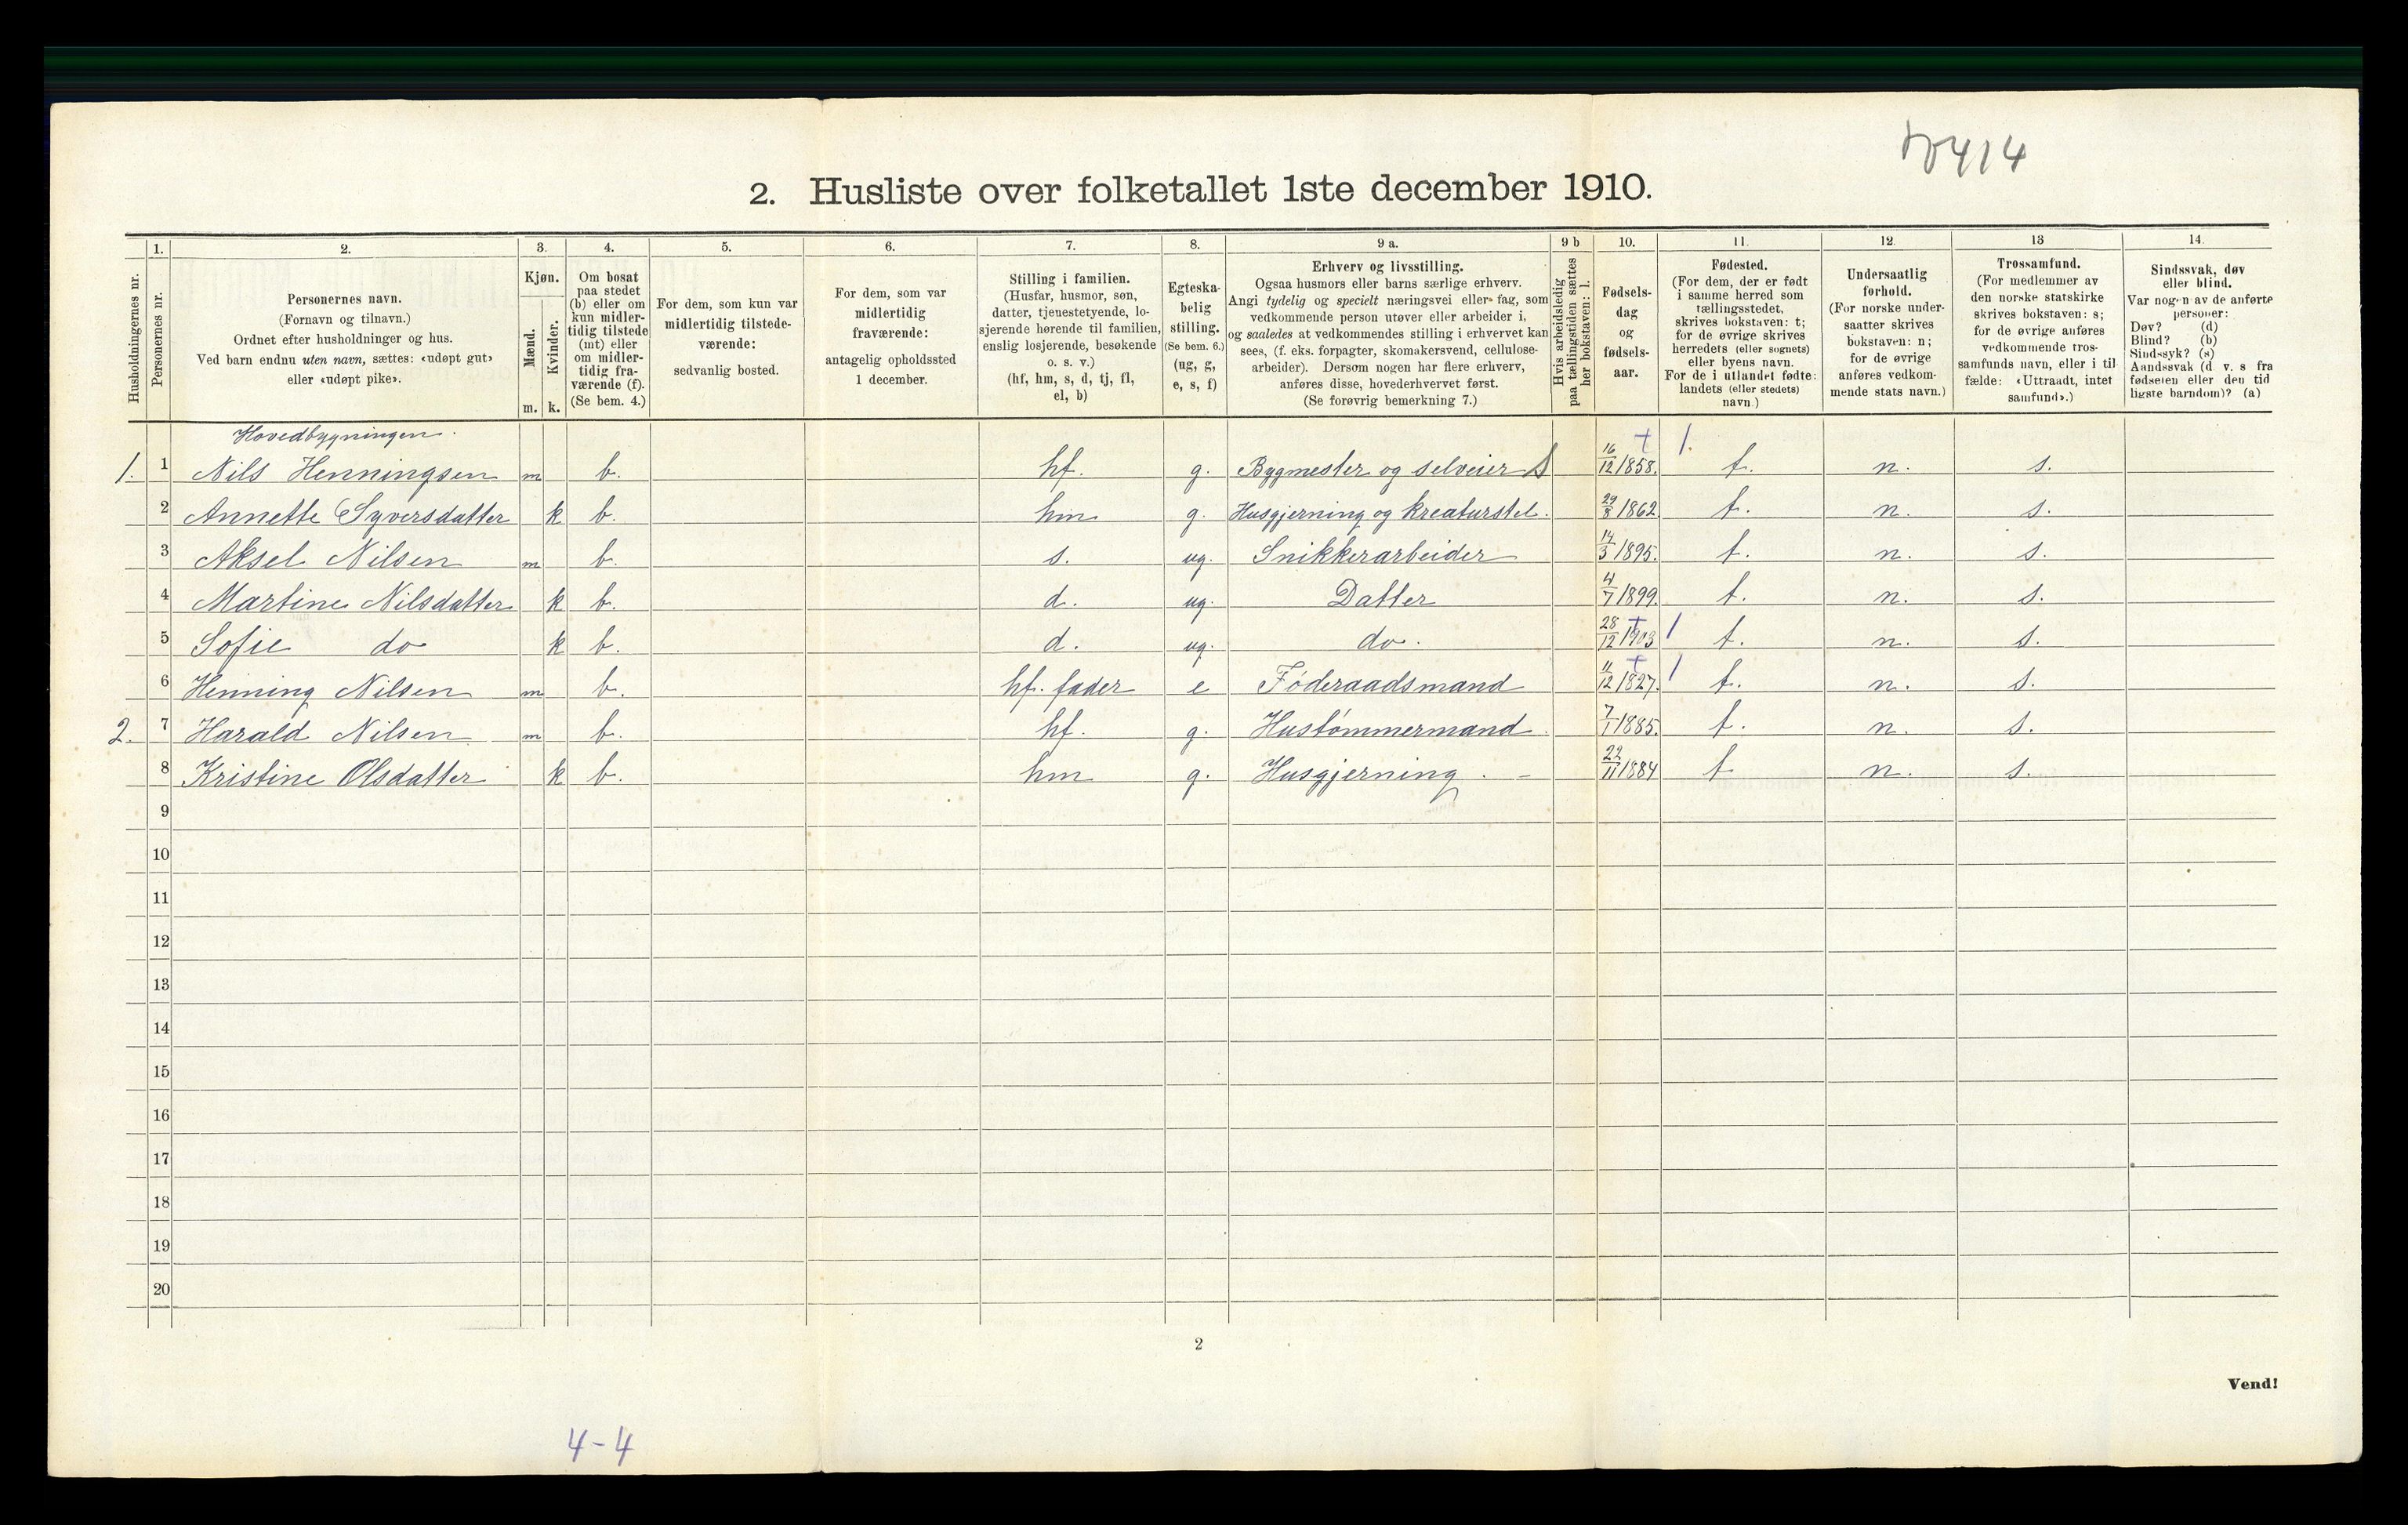 414
2. Husliste over folketallet 1ste december 1910.
Husholdningernes nr.
1.
Personernes nr.
2.
Personernes navn.
(Fornavn og tilnavn.)
Ordnet efter husholdninger og hus.
Ved barn endnu uten navn, sættes: «udøpt gut»
eller «udøpt pike».
3.
Kjøn.
Mænd.
Kvinder.
m. k.
4.
Om bosat
paa stedet
(b) eller om
kun midler-
tidig tilstede
(mt) eller
om midler-
tidig fra-
værende (f).
(Se bem. 4.)
5.
For dem, som kun var
midlertidig tilstede-
værende:
sedvanlig bosted.
6.
For dem, som var
midlertidig
fraværende:
antagelig opholdssted
1 december.
7.
Stilling i familien.
(Husfar, husmor, søn,
datter, tjenestetyende, lo-
sjerende hørende til familien,
enslig losjerende, besøkende
o. s. v.)
(hf, hm, s, d, tj, fl,
el, b)
8.
Egteska-
belig
stilling.
(Se bem. 6.)
(ug, g,
e, s, f)
9 a.
Erhverv og livsstilling.
Ogsaa husmors eller barns særlige erhverv.
Angi tydelig og specielt næringsvei eller fag, som
vedkommende person utøver eller arbeider i,
og saaledes at vedkommendes stilling i erhvervet kan
sees, (f. eks. forpagter, skomakersvend, cellulose-
arbeider). Dersom nogen har flere erhverv,
anføres disse, hovederhvervet først.
(Se forøvrig bemerkning 7.)
9 b
Hvis arbeidsledig
paa tællingstiden sættes
her bokstaven: l.
10.
Fødsels-
dag
og
fødsels-
aar.
11.
Fødested.
(For dem, der er født
i samme herred som
tællingsstedet,
skrives bokstaven: t;
for de øvrige skrives
herredets (eller sognets)
eller byens navn.
For de i utlandet fødte:
landets (eller stedets)
navn.)
12.
Undersaatlig
forhold.
(For norske under-
saatter skrives
bokstaven: n;
for de øvrige
anføres vedkom-
mende stats navn.)
13
Trossamfund.
(For medlemmer av
den norske statskirke
skrives bokstaven: s;
for de øvrige anføres
vedkommende tros-
samfunds navn, eller i til
fælde: «Uttraadt, intet
samfund».)
14.
Sindssvak, døv
eller blind.
Var nogen av de anførte
personer:
Døv? (d)
Blind? (b)
Sindssyk? (s)
Aandssvak (d. v. s fra
fødselen eller den tid
ligste barndom)? (a)
Hovedbygningen.
1. 1 Nils Henningsen m b. hf. g. Bygmester og selveier S 16/12 1858. + 1. t. n. s.
2 Annette Syversdatter k b. hm g. Husgjerning og kreaturstel. 29/8 1862. t. n. s.
3 Aksel Nilsen m b. s. ug. Snikkerarbeider 14/3 1895. t. n. s.
4 Martine Nilsdatter k b. d. ug. Datter 4/7 1899. t. n. s.
5 Sofie do k b. d. ug. do. 28/12 1903 + 1 t. n. s.
6 Henning Nilsen m b. hf. fader e Føderaadsmand 11/12 1827. + 1 t. n. s.
2. 7 Harald Nilsen m b. hf. g. Hustømmermand. 7/1 1885. t. n. s.
8 Kristine Olsdatter k b. hm g. Husgjerning. - 22/11 1884 t n. s.
9
10
11
12
13
14
15
16
17
18
19
20
2
Vend!
4-4